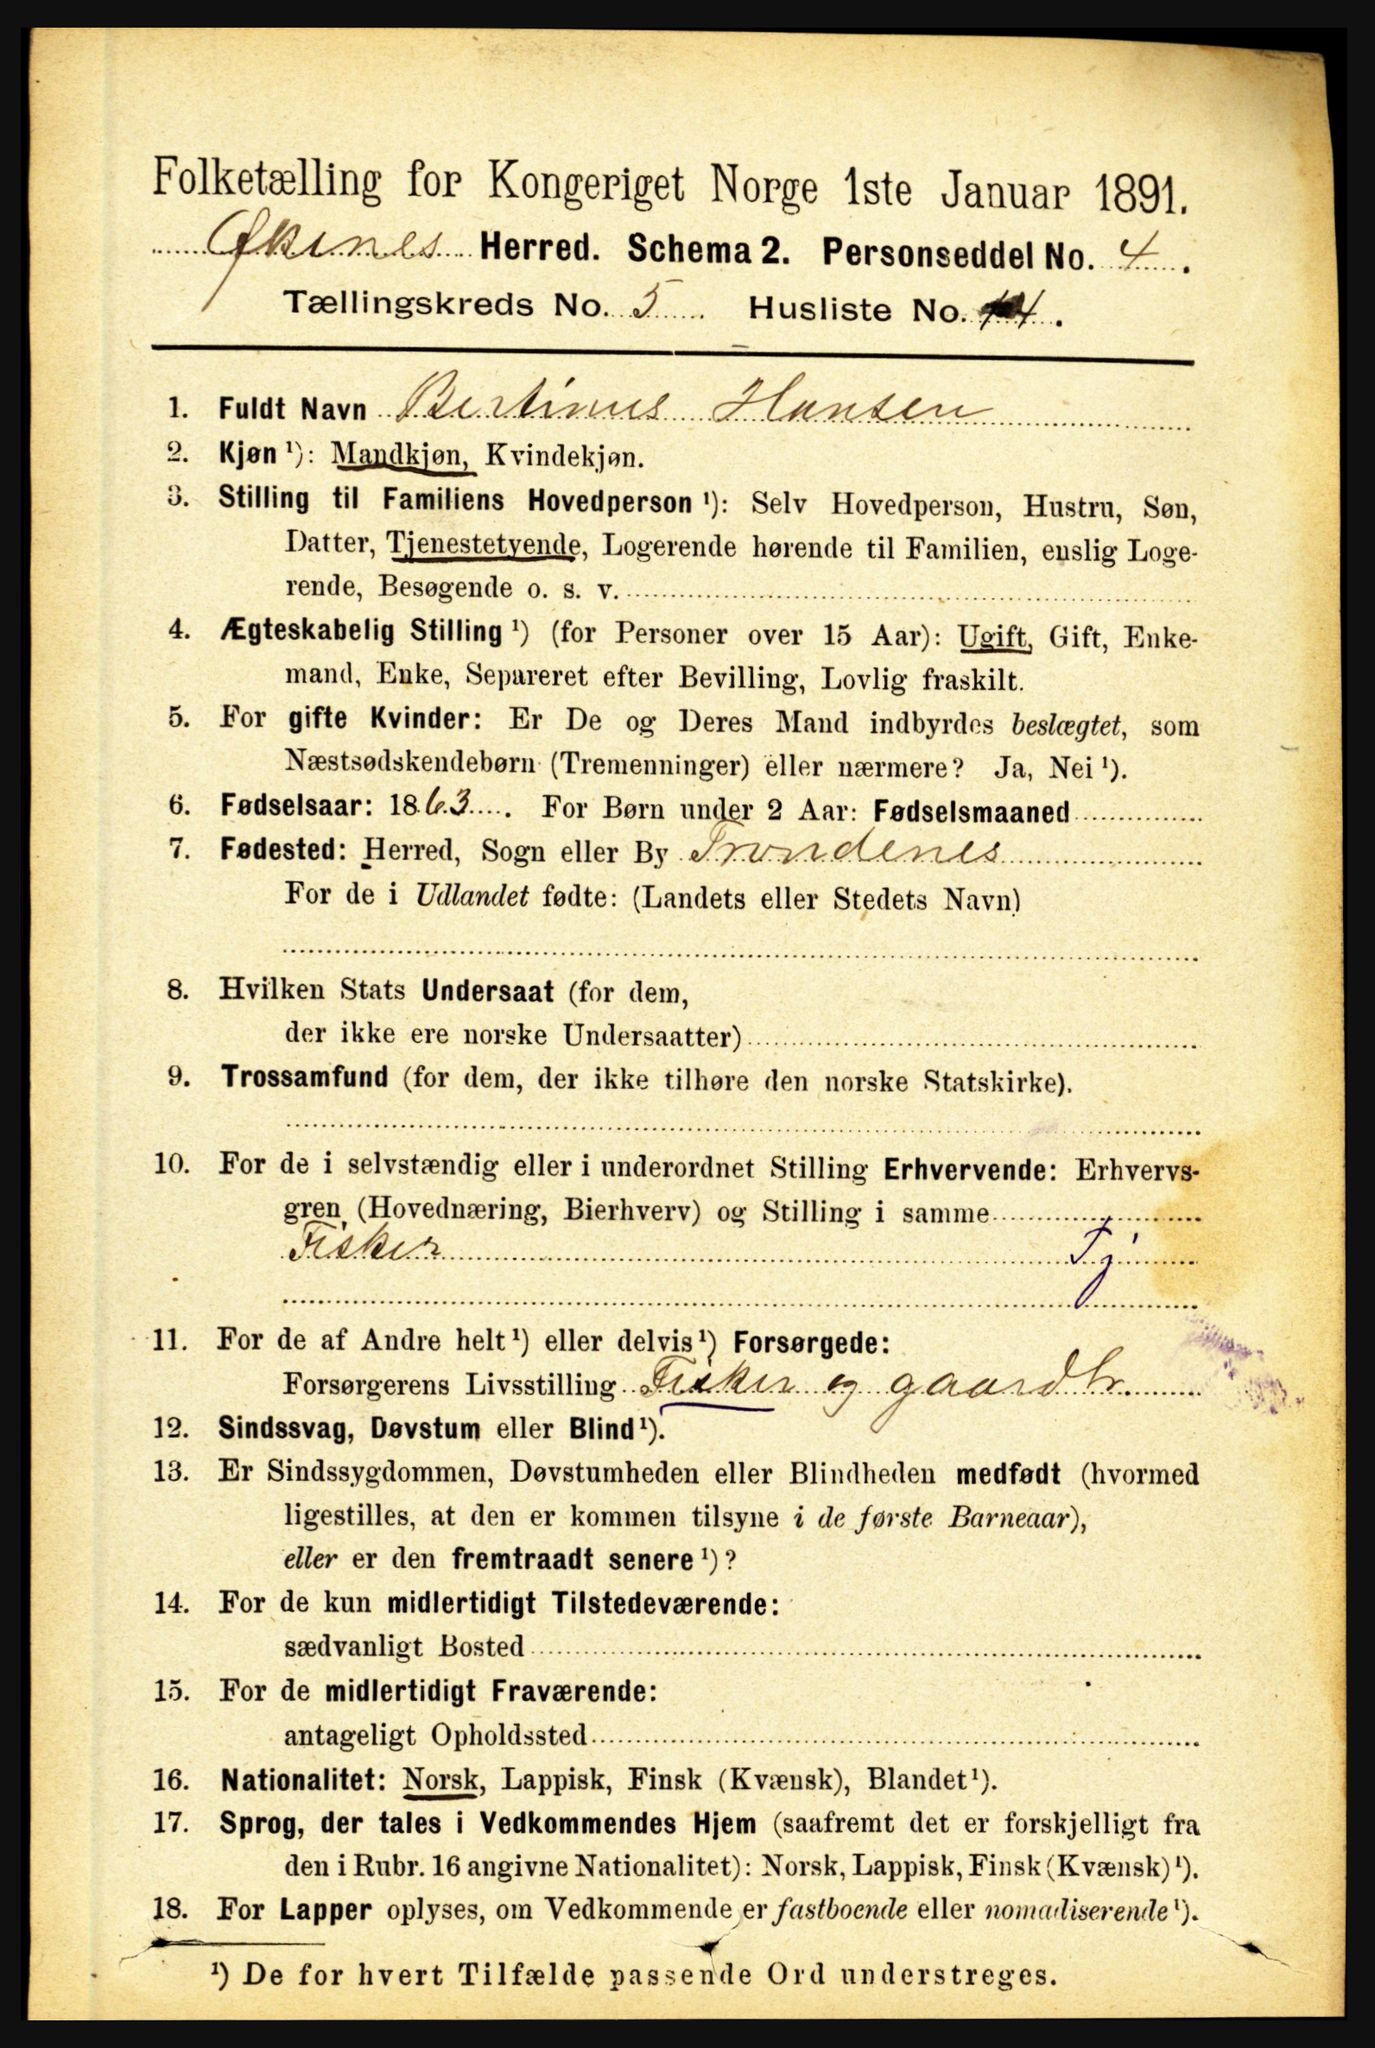 Folketælling for Kongeriget Norge 1ste Januar 1891.
Øksnes Herred. Schema 2. Personseddel No. 4.
Tællingskreds No. 5 Husliste No. 4.
1. Fuldt Navn Bertinus Hansen
2. Kjøn ¹): Mandkjøn, Kvindekjøn.
3. Stilling til Familiens Hovedperson ¹): Selv Hovedperson, Hustru, Søn,
Datter, Tjenestetyende, Logerende hørende til Familien, enslig Loge-
rende, Besøgende o. s. v.
4. Ægteskabelig Stilling ¹) (for Personer over 15 Aar): Ugift, Gift, Enke-
mand, Enke, Separeret efter Bevilling, Lovlig fraskilt.
5. For gifte Kvinder: Er De og Deres Mand indbyrdes beslægtet, som
Næstsødskendebørn (Tremenninger) eller nærmere? Ja, Nei ¹).
6. Fødselsaar: 1863. For Børn under 2 Aar: Fødselsmaaned
7. Fødested: Herred, Sogn eller By Trondenes
For de i Udlandet fødte: (Landets eller Stedets Navn)
8. Hvilken Stats Undersaat (for dem,
der ikke ere norske Undersaatter)
9. Trossamfund (for dem, der ikke tilhøre den norske Statskirke).
10. For de i selvstændig eller i underordnet Stilling Erhvervende: Erhvervs-
gren (Hovednæring, Bierhverv) og Stilling i samme
Fisker Tj
11. For de af Andre helt ¹) eller delvis ¹) Forsørgede:
Forsørgerens Livsstilling Fisker og gaardbr.
12. Sindssvag, Døvstum eller Blind ¹).
13. Er Sindssygdommen, Døvstumheden eller Blindheden medfødt (hvormed
ligestilles, at den er kommen tilsyne i de første Barneaar),
eller er den fremtraadt senere ¹)?
14. For de kun midlertidigt Tilstedeværende:
sædvanligt Bosted
15. For de midlertidigt Fraværende:
antageligt Opholdssted
16. Nationalitet: Norsk, Lappisk, Finsk (Kvænsk), Blandet ¹).
17. Sprog, der tales i Vedkommendes Hjem (saafremt det er forskjelligt fra
den i Rubr. 16 angivne Nationalitet): Norsk, Lappisk, Finsk (Kvænsk) ¹).
18. For Lapper oplyses, om Vedkommende er fastboende eller nomadiserende ¹).
¹) De for hvert Tilfælde passende Ord understreges.